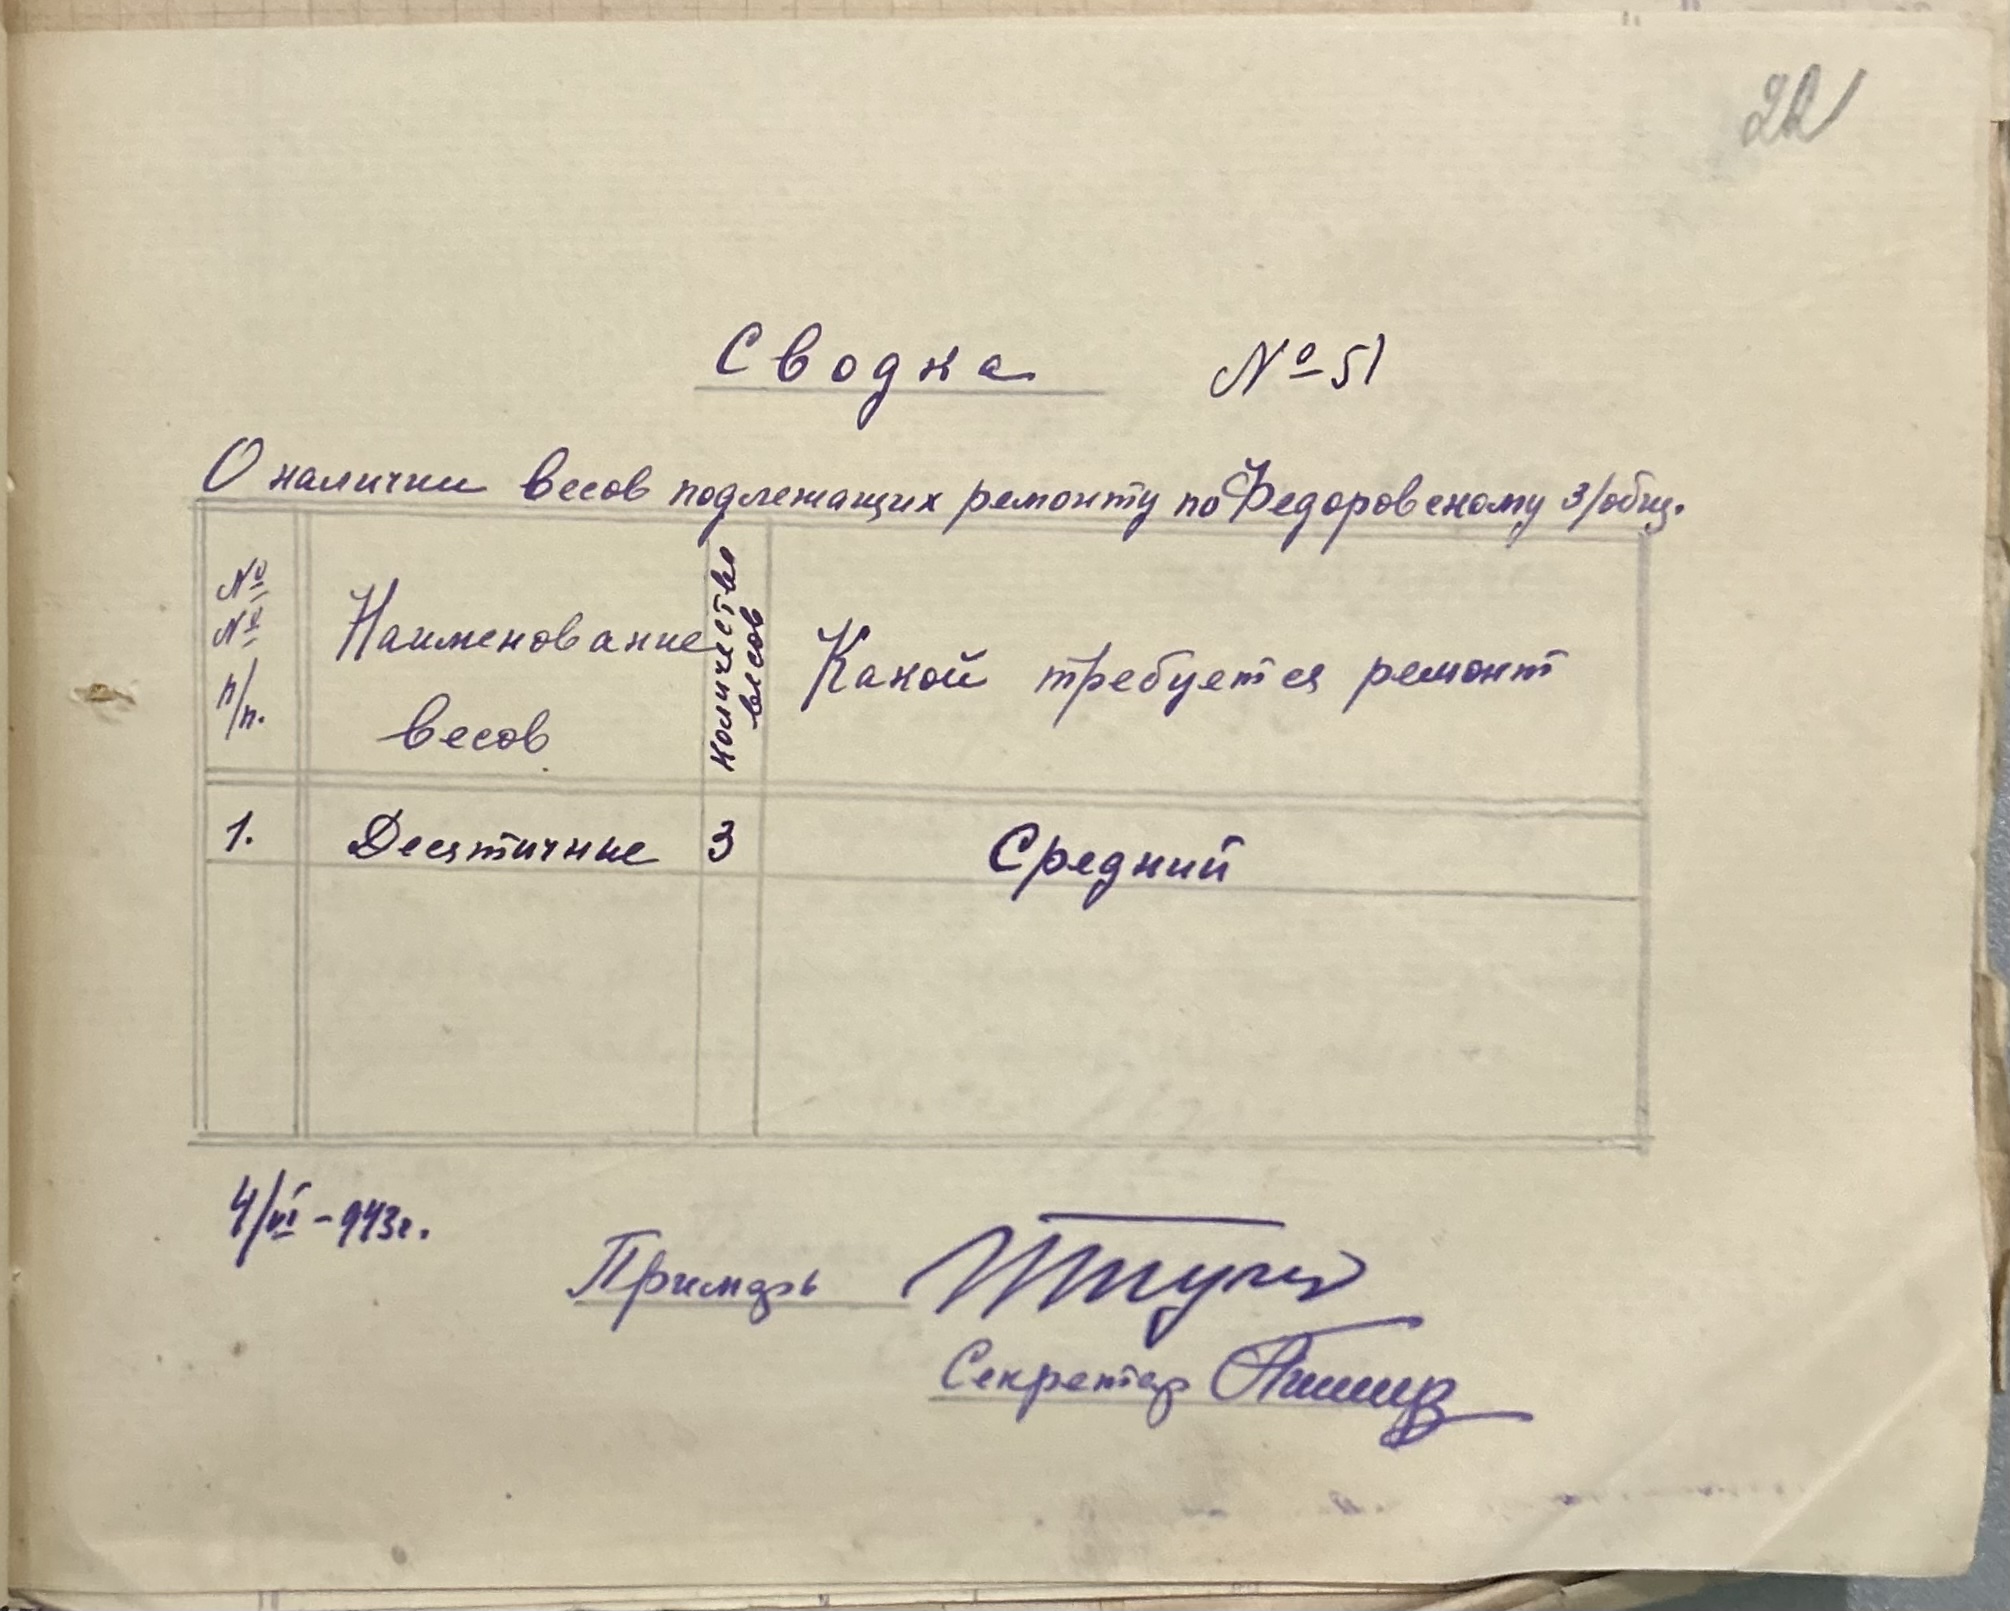 22
Сводка № 51
О наличии весов подлежащих ремонту по Федоровскому з/общ.
№ № п/п.
Наименование весов
Количество весов
Какой требуется ремонт
1. Десятичные 3 Средний
4/VI - 943г.
Примарь
Секретар